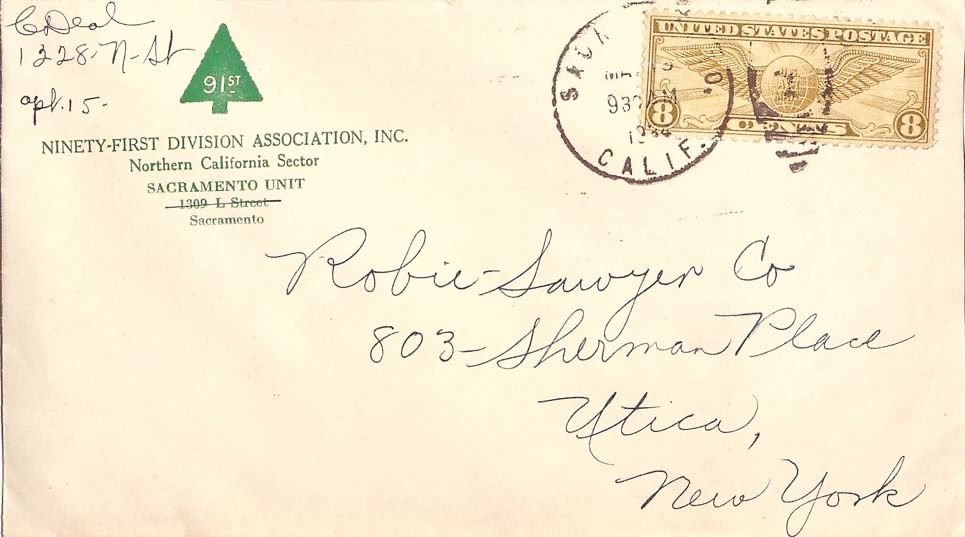 C Deal
1228-N-St
apt. 15-
91ST
NINETY-FIRST DIVISION ASSOCIATION, INC.
Northern California Sector
SACRAMENTO UNIT
1309 L Street
Sacramento
CALIF.
UNITED STATES POSTAGE
8 CENTS 8
Robie-Sawyer Co
803-Sherman Place
Utica,
New York